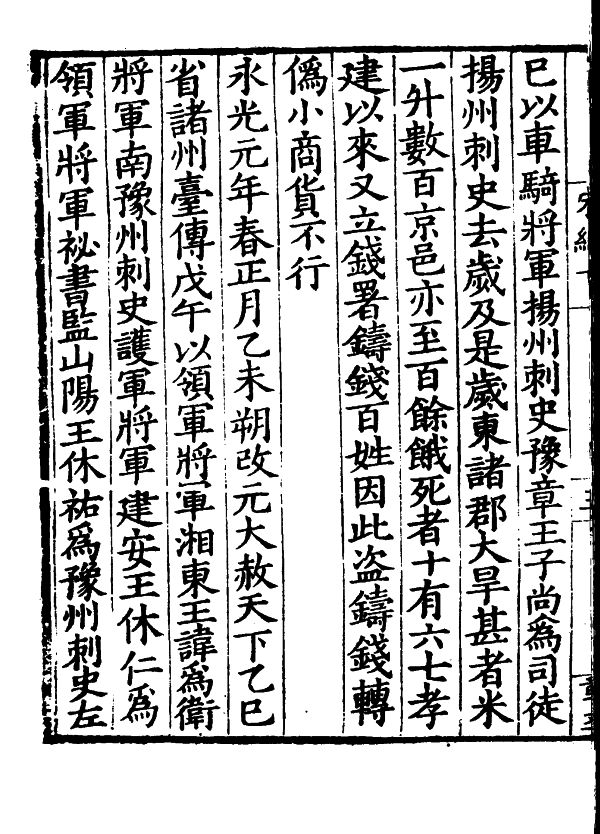 巳以車騎將軍揚州刺史豫章王子尚爲司徒
揚州刺史去歲及是歲東諸郡大旱甚者米
一升數百京邑亦至百餘餓死者十有六七孝
建以來又立錢署鑄錢百姓因此盜鑄錢轉
僞小商貨不行
永光元年春正月乙未朔改元大赦天下乙巳
省諸州臺傳戊午以領軍將軍湘東王諱爲衛
將軍南豫州刺史護軍將軍建安王休仁爲
領軍將軍祕書監山陽王休祐爲豫州刺史左